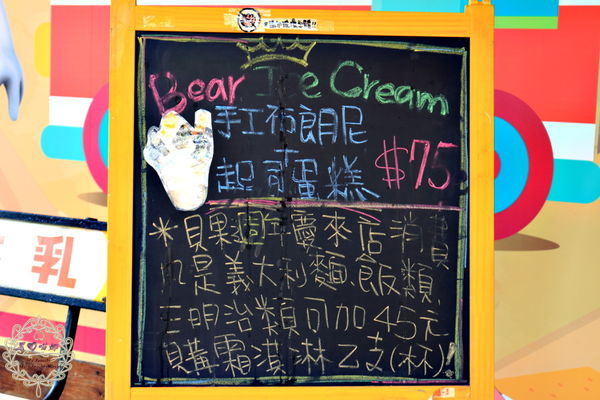 Bear Ice Cream
手工布朗尼
+
起司蛋糕 $75
*貝果週年慶來店消費
凡是義大利麵、飯類、
三明治類可加45元
購霜淇淋乙支(杯)!
乳